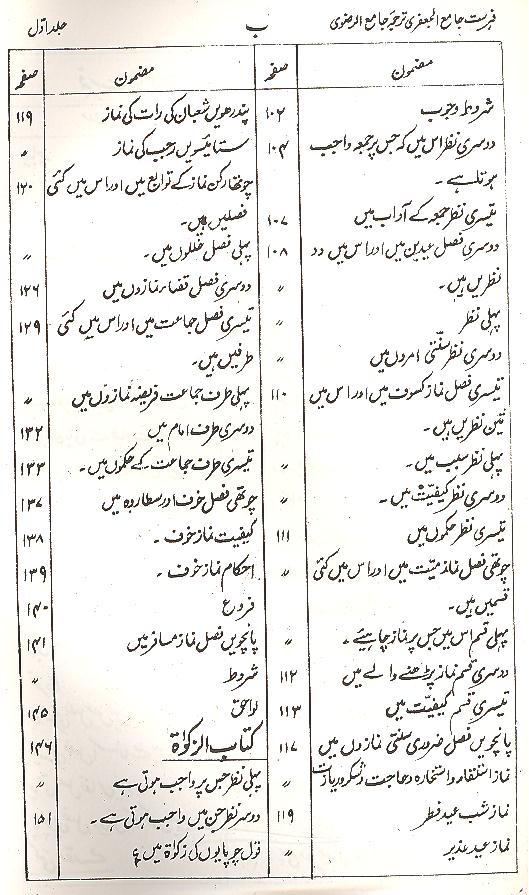 فہرست جامع الجعفری ترجمہ جامع الرضوی
ب
جلد اوّل
مضمون
صفحہ
شروط وجوب ۱۰۲
دوسری نظر اس میں کہ جس پر جمعہ واجب ۱۰۴
ہوتا ہے ۔
تیسری نظر جمعہ کے آداب میں ۱۰۷
دوسری فصل عیدین میں اور اس میں دو ۱۰۸
نظریں ہیں ۔
پہلی نظر 〃
دوسری نظر سنّتی امروں میں 〃
تیسری فصل نماز کسوف میں اور اس میں ۱۱۰
تین نظریں ہیں ۔
پہلی نظر سبب میں ۔ 〃
دوسری نظر کیفیّت میں ۔ 〃
تیسری نظر حکموں میں ۱۱۱
چوتھی فصل نماز میّت میں اور اس میں کئی 〃
قسمیں ہیں ۔
پہلی قسم اس میں جس پر نماز چاہیئے ۔ 〃
دوسری قسم نماز پڑھنے والے میں ۱۱۲
تیسری قسم کیفیّت میں ۱۱۳
پانچویں فصل ضروری سنتی نمازوں میں ۱۱۷
نماز استسقاء و استخارہ و حاجت و شکر و زیارت 〃
نماز شب عید فطر ۱۱۹
نماز عید غدیر 〃
مضمون
صفحہ
پندرھویں شعبان کی رات کی نماز ۱۱۹
ستائیسویں رجب کی نماز 〃
چوتھا رکن نماز کے توابع میں اور اس میں کئی ۱۲۰
فصلیں ہیں ۔
پہلی فصل خللوں میں ۔ 〃
دوسری فصل قضاء نمازوں میں ۱۲۶
تیسری فصل جماعت میں اور اس میں کئی ۱۲۹
طرفیں ہیں ۔
پہلی طرف جماعت فریضہ نمازوں میں 〃
دوسری طرف امام میں ۱۳۲
تیسری طرف جماعت کے حکموں میں ۔ ۱۳۳
چوتھی فصل خوف اور مطاردہ میں ۱۳۷
کیفیت نماز خوف ۔ ۱۳۸
احکام نماز خوف ۔ ۱۳۹
فروع ۱۴۰
پانچویں فصل نماز مسافر میں ۱۴۱
شروط 〃
لواحق ۱۴۵
کتاب الزکوٰة ۱۴۶
پہلی نظر جس پر واجب ہوتی ہے 〃
دوسر نظر جن میں واجب ہوتی ہے ۔ ۱۵۱
قول چوپایوں کی زکوٰة میں